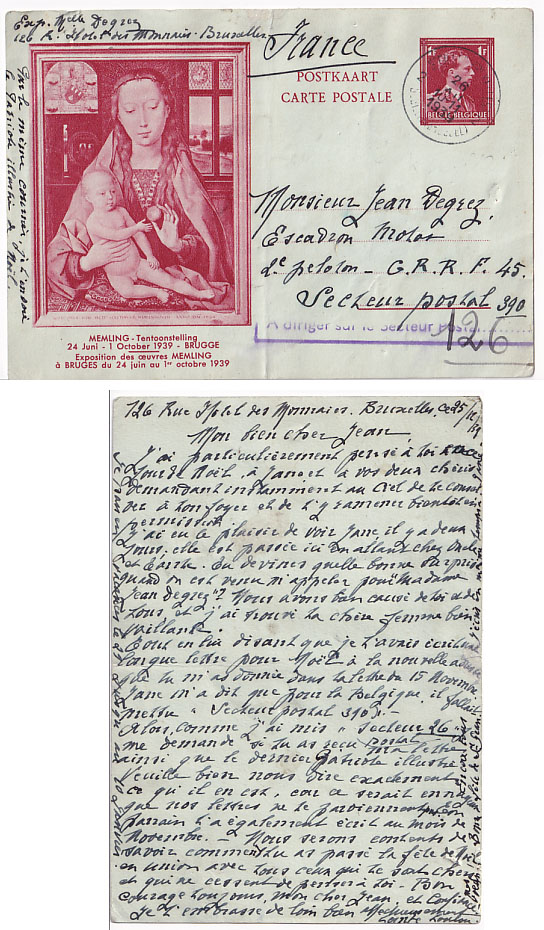 Exp. Melle Degrez
126 R. Hotel des Monnaies. Bruxelles
France
POSTKAART
CARTE POSTALE
1F 1F
BELGIE-BELGIQUE
Par le même courrier, je t'envoie
le Patriote illustré de Noël
Monsieur Jean Degrez,
Escadron Motos
2e peloton - G. R. R. F. 45.
Secteur postal 390
A diriger sur le Secteur Postal
126
MEMLING - Tentoonstelling
24 Juni - 1 October 1939 - BRUGGE
Exposition des œuvres MEMLING
à BRUGES du 24 juin au 1er octobre 1939
126 Rue Hotel des Monnaies. Bruxelles, ce 25/12/39
Mon bien cher Jean,
J'ai particulièrement pensé à toi ce
jour de Noël, à Jane et à vos deux chéris
demandant instamment au Ciel de te conser
ver à ton foyer et de t'y ramener bientôt en
permission.
J'ai eu le plaisir de voir Jane, il y a deux
jours, elle est passée ici en allant chez Oncle
et Tante. Tu devines quelle bonne surprise
quand on est venu m'appeler pour "Madame
Jean Degrez"! Nous avons bien causé de toi et de
tous et j'ai trouvé ta chère femme bien
vaillante.
Tout en lui disant que je t'avais écrit une
longue lettre pour Noël à la nouvelle adresse
que tu m'as donnée dans ta lettre du 15 Novembre
Jane m'a dit que pour la Belgique, il fallait
mettre "Secteur postal 390".-
Alors, comme j'ai mis "Secteur 26"
postal
me demande si tu as reçu ma lettre
ainsi que le dernier Patriote illustré
Veuille bien nous dire exactement
ce qui il en est, car ce serait ennuyeux
que nos lettres ne te parviennent pas
Parrain t'a également écrit au mois de
Novembre. - Nous serons contents de
savoir comment tu as passé la fête de Noël
en union avec tous ceux qui te sont chers
et qui ne cessent de penser à toi. - Bon
courage toujours, mon cher Jean, et Confiance
Je t'embrasse de loin bien affectueusement